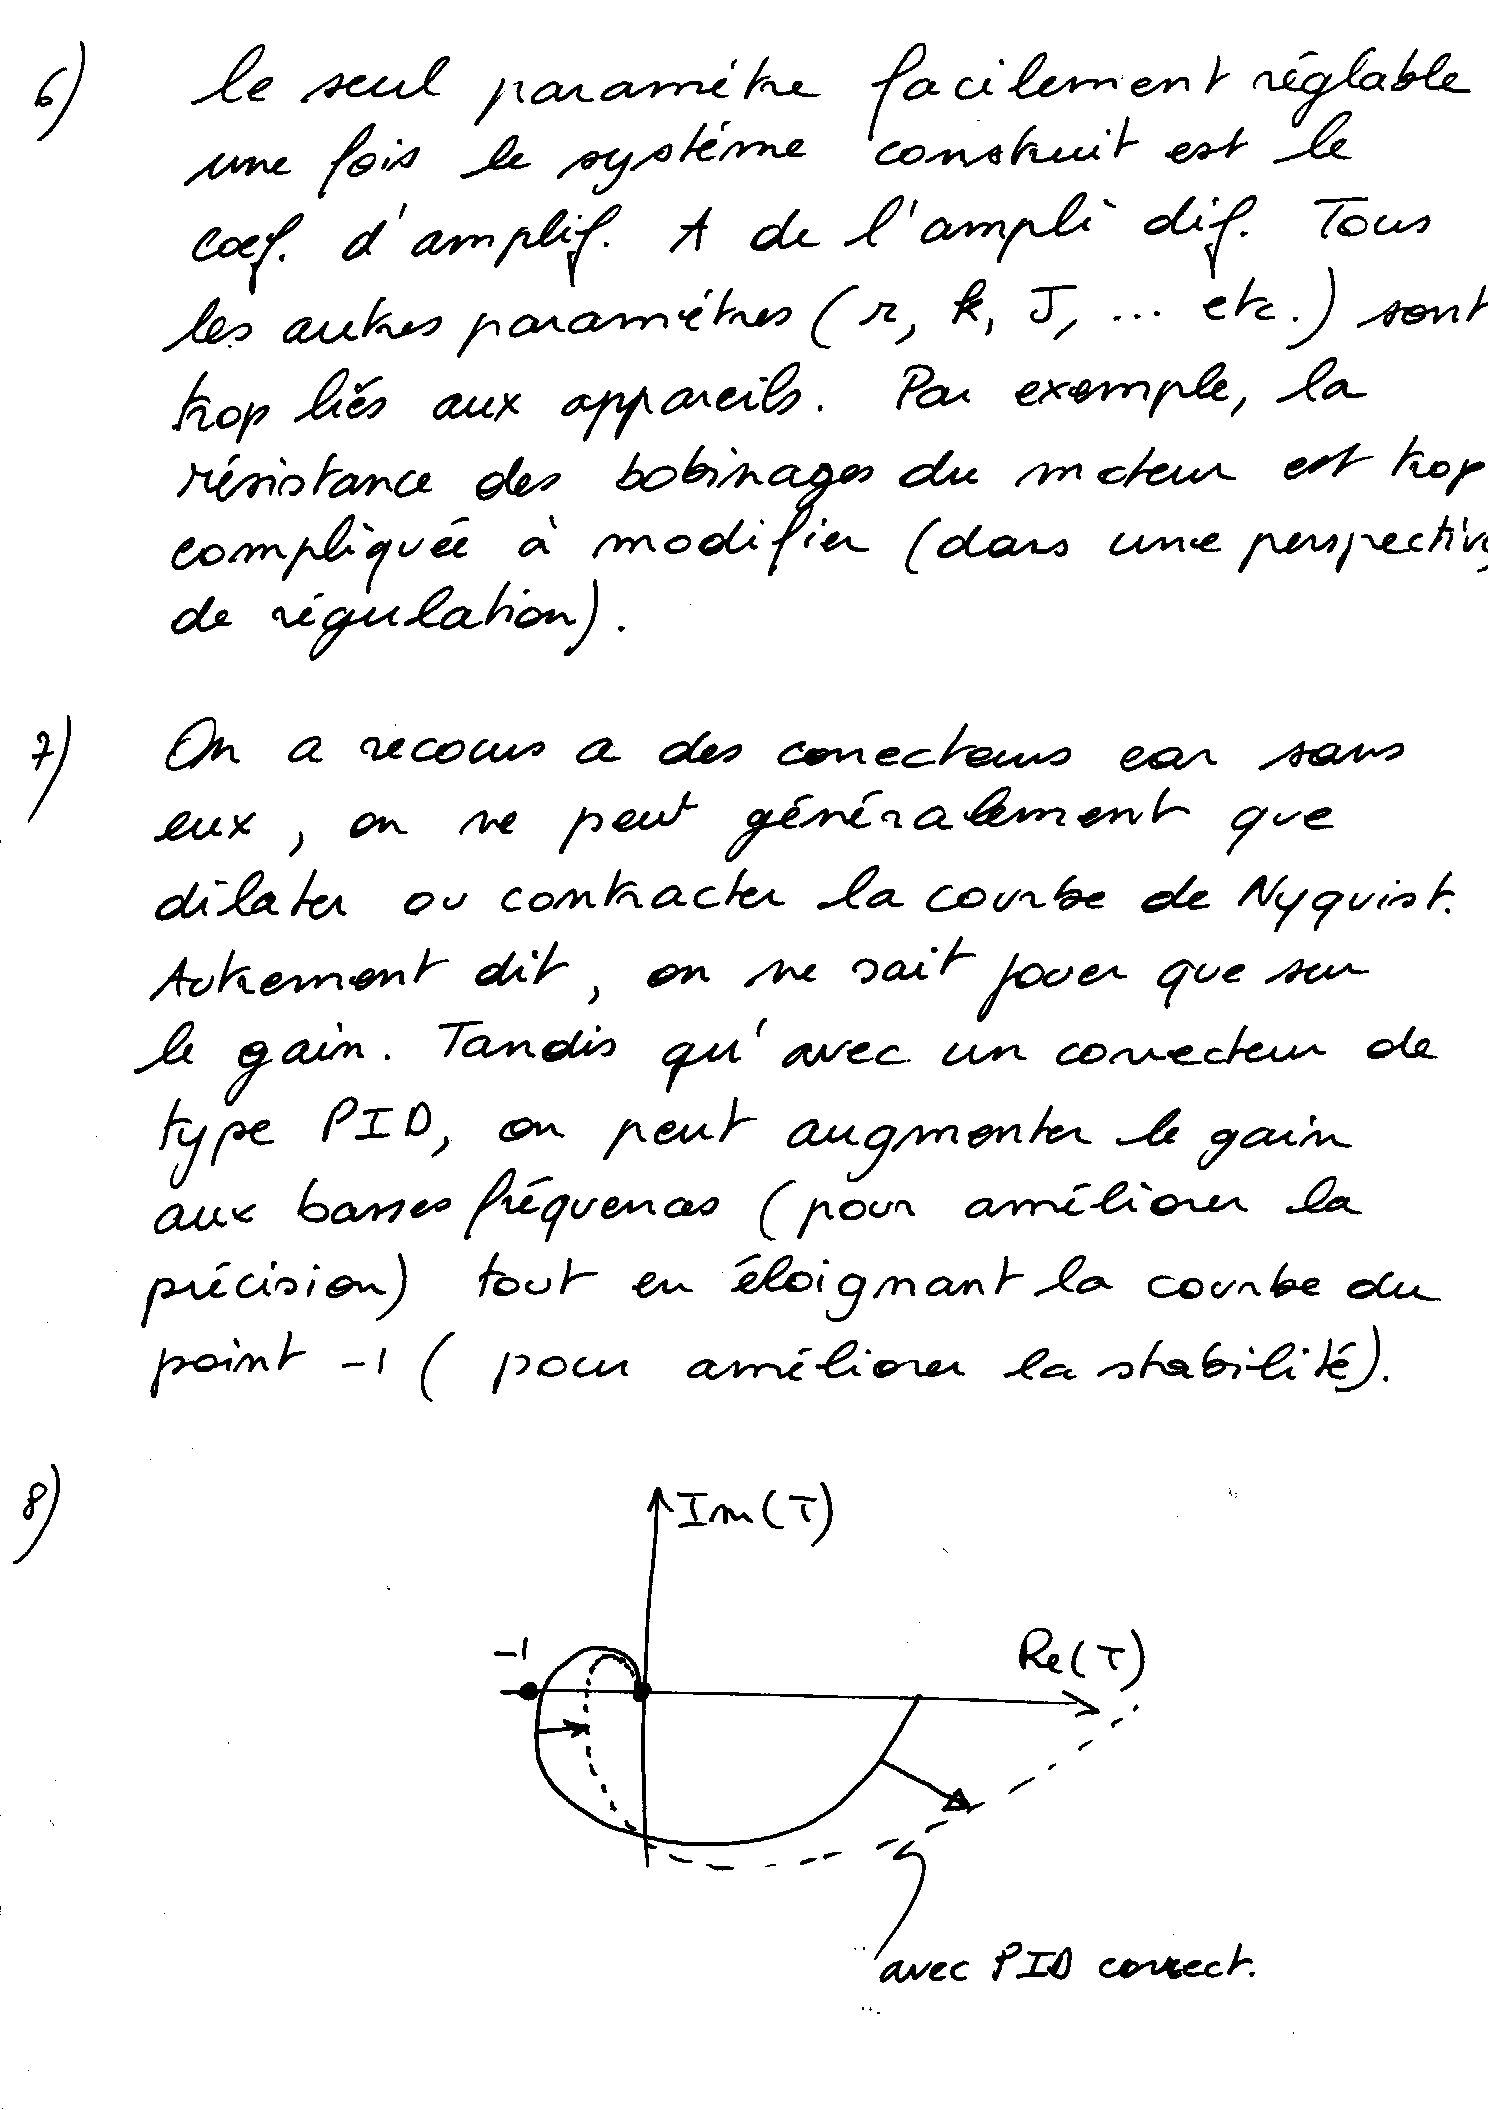 6) le seul paramètre facilement réglable
une fois le système construit est le
coef. d'amplif. A de l'ampli dif. Tous
les autres paramètres (r, k, J, ... etc.) sont
trop liés aux appareils. Par exemple, la
résistance des bobinages du moteur est trop
compliquée à modifier (dans une perspective
de régulation).
7) On a recours a des correcteurs car sans
eux, on ne peut généralement que
dilater ou contracter la courbe de Nyquist.
Autrement dit, on ne sait jouer que sur
le gain. Tandis qu'avec un correcteur de
type PID, on peut augmenter le gain
aux basses fréquences (pour améliorer la
précision) tout en éloignant la courbe du
point -1 (pour améliorer la stabilité).
8)
Im(T)
-1
Re(T)
avec PID correct.